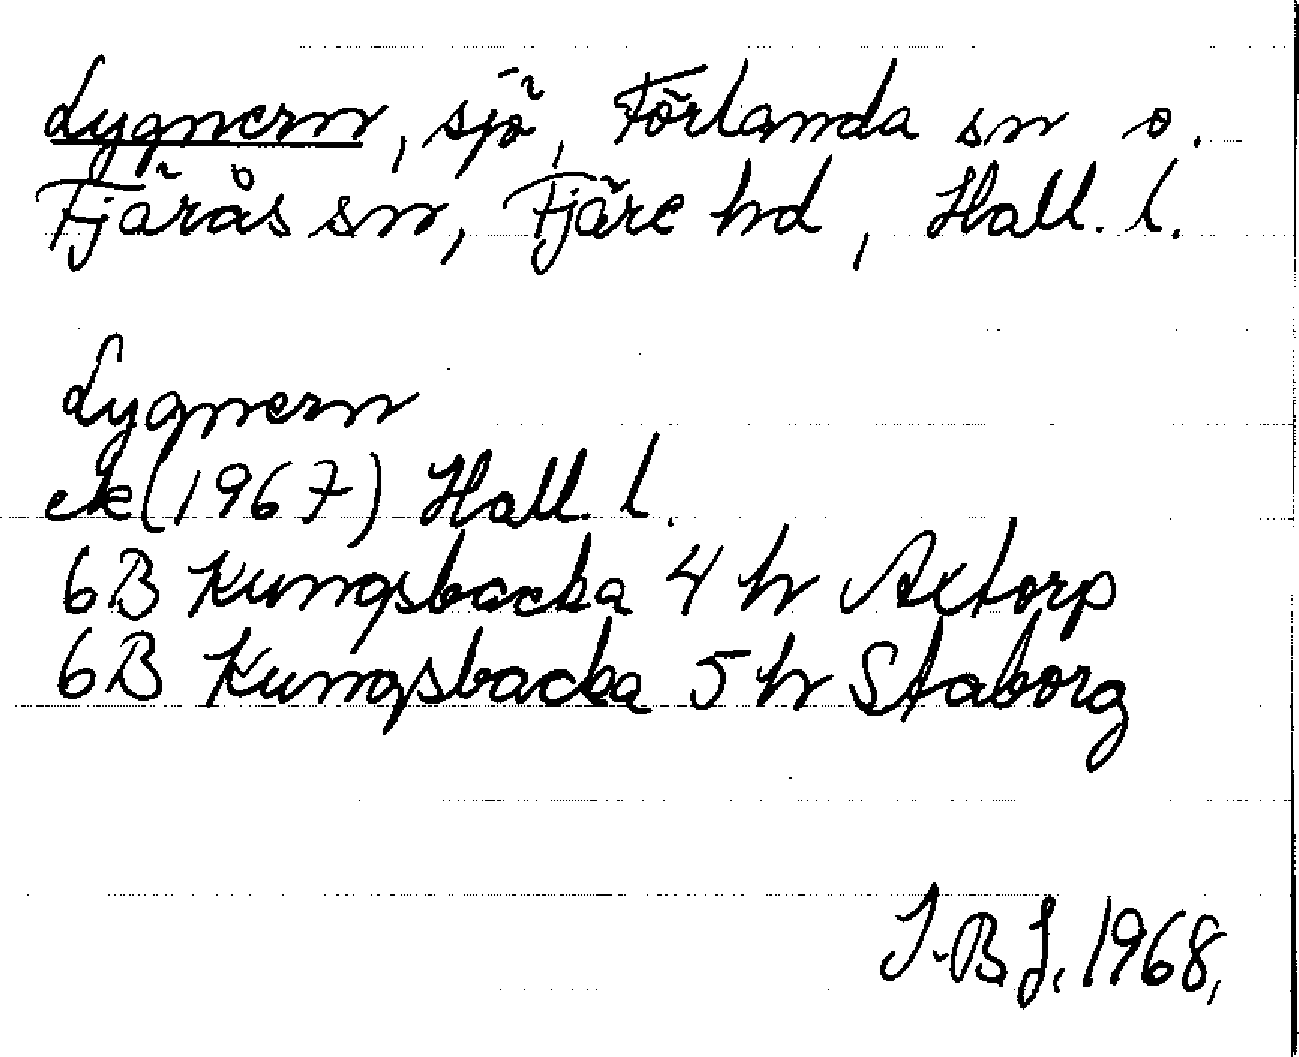 Lygnern, sjö, Förlanda sn o.
Fjärås sn, Fjäre hd, Hall. l.
Lygnern
ek (1967) Hall. l.
6B Kungsbacka 4 h Axtorp
6B Kungsbacka 5 h Staborg
I-B J. 1968.